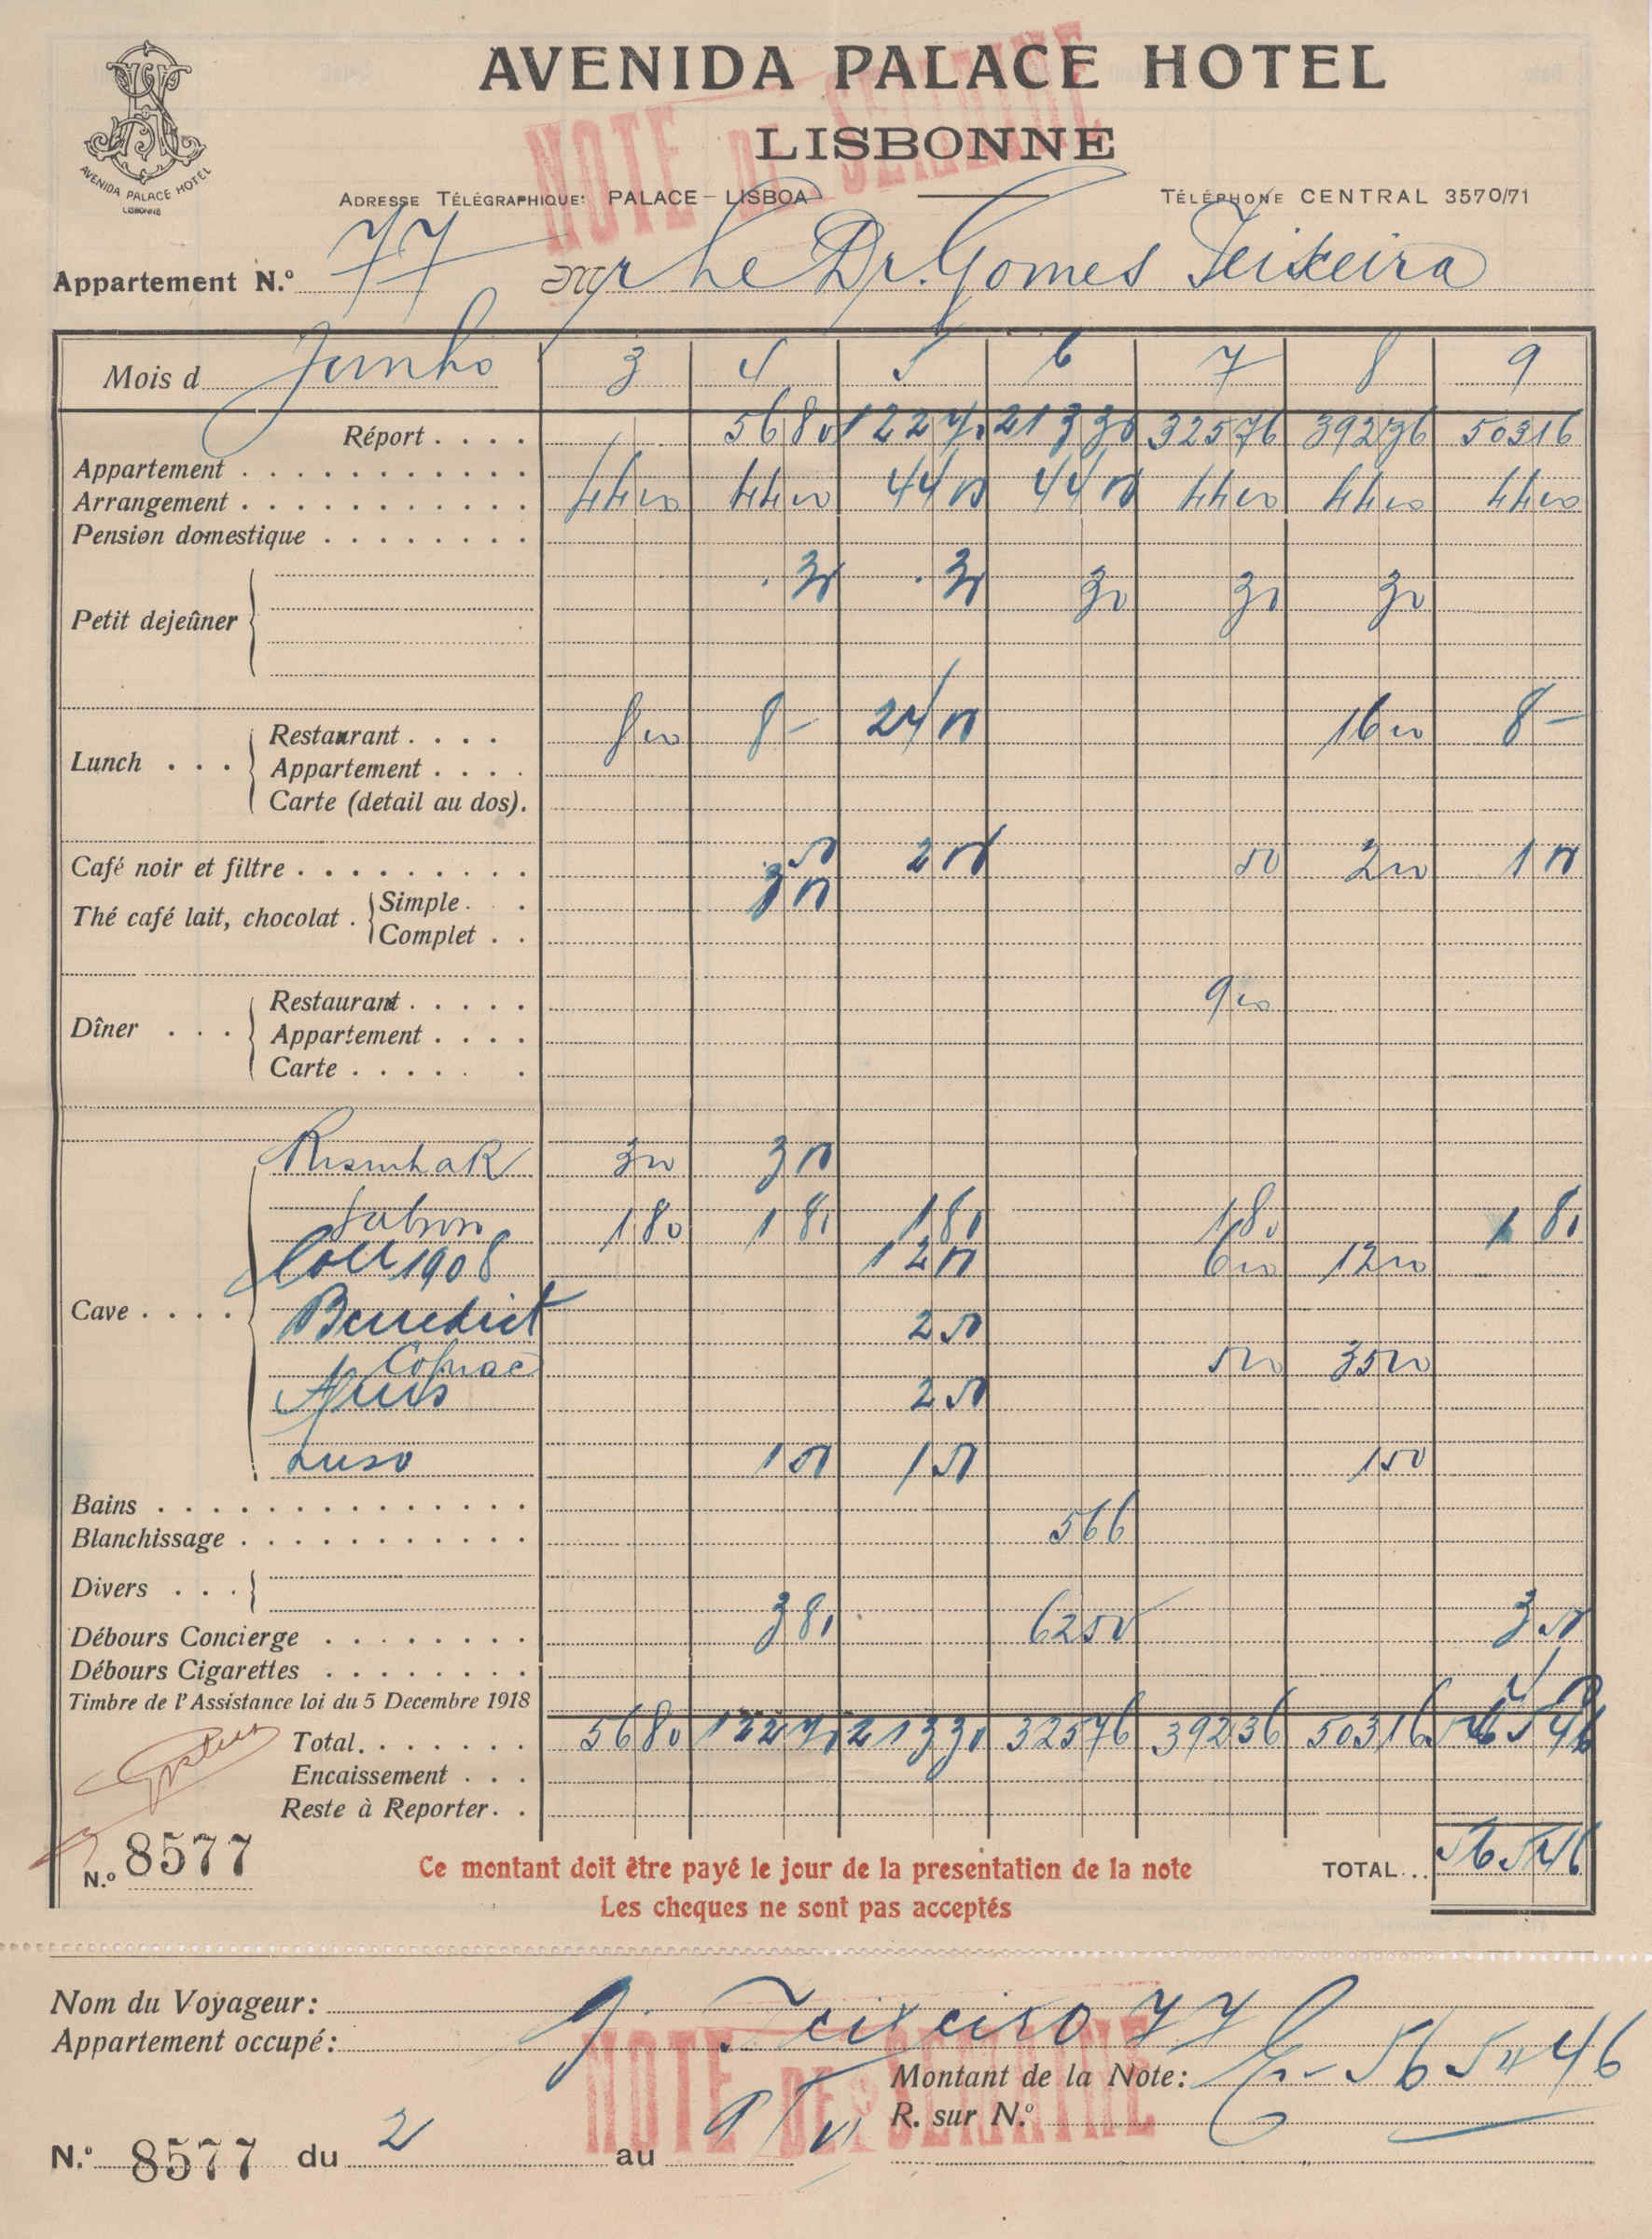 AVENIDA PALACE HOTEL
LISBONNE
NOTE DE SEMAINE
AVENIDA PALACE HOTEL
LISBONNE
ADRESSE TÉLÉGRAPHIQUE: PALACE – LISBOA
TÉLÉPHONE CENTRAL 3570/71
Appartement N.º 77 Dr. Gomes Teixeira
Mois d Junho 3 4 5 6 7 8 9
Réport . . . . 5680 12270 21330 32576 39236 50316
Appartement . . . . . . . . . . . .
Arrangement . . . . . . . . . . . . 4400 4400 4400 4400 4400 4400 4400
Pension domestique . . . . . . . .
Petit dejeûner 30 30 30 30 30
Lunch . . . Restaurant . . . . 800 8– 2400 1600 8–
Appartement . . . .
Carte (detail au dos).
Café noir et filtre . . . . . . . . . 50 200 50 200 100
Thé café lait, chocolat . Simple . . 300
Complet . .
Dîner . . . Restaurant . . . . . 900
Appartement . . . .
Carte . . . . . .
300 300
180 180 180 180 180
1908 1200 600 1200
Cave . . . . Benedict 250
Cognac 500 3500
250
Luso 150 150 150
Bains . . . . . . . . . . . . . .
Blanchissage . . . . . . . . . . . 566
Divers . . .
Débours Concierge . . . . . . . . 380 6250 350
Débours Cigarettes . . . . . . . .
Timbre de l'Assistance loi du 5 Decembre 1918
Total . . . . . . . 5680 12270 21330 32576 39236 50316 56546
Encaissement . . .
Reste à Reporter . .
N.º 8577
Ce montant doit être payé le jour de la presentation de la note
Les cheques ne sont pas acceptés
TOTAL . . 56546
Nom du Voyageur: G. Teixeira 77
Appartement occupé:
NOTE DE SEMAINE
Montant de la Note: 56546
R. sur N.º
N.º 8577 du 2 au 9/VI